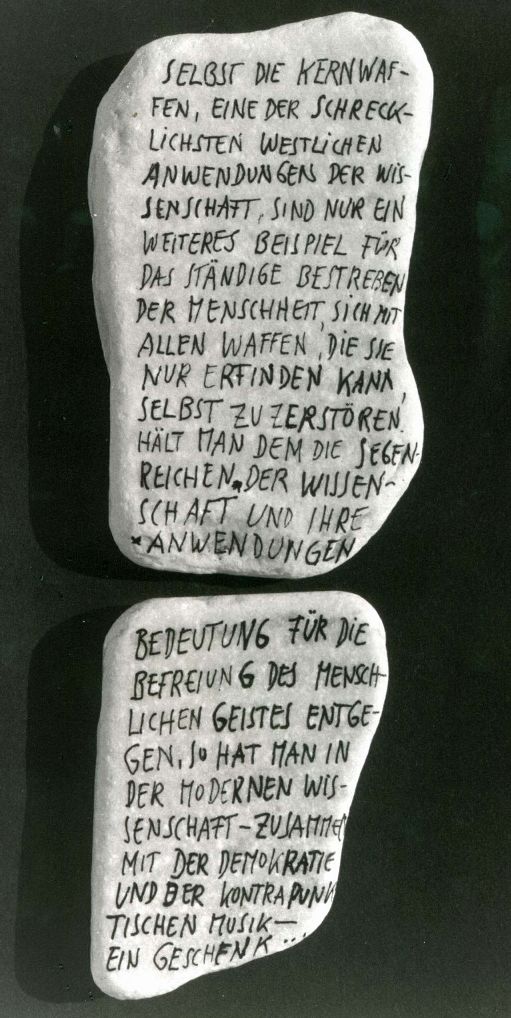 SELBST DIE KERNWAF-
FEN, EINE DER SCHRECK-
LICHSTEN WESTLICHEN
ANWENDUNGEN DER WIS-
SENSCHAFT, SIND NUR EIN
WEITERES BEISPIEL FÜR
DAS STÄNDIGE BESTREBEN
DER MENSCHHEIT, SICH MIT
ALLEN WAFFEN, DIE SIE
NUR ERFINDEN KANN,
SELBST ZU ZERSTÖREN.
HÄLT MAN DEM DIE SEGEN-
REICHEN * DER WISSEN-
SCHAFT UND IHRE
* ANWENDUNGEN
BEDEUTUNG FÜR DIE
BEFREIUNG DES MENSCH-
LICHEN GEISTES ENTGE-
GEN, SO HAT MAN IN
DER MODERNEN WIS-
SENSCHAFT - ZUSAMMEN
MIT DER DEMOKRATIE
UND DER KONTRAPUNK
TISCHEN MUSIK -
EIN GESCHENK...